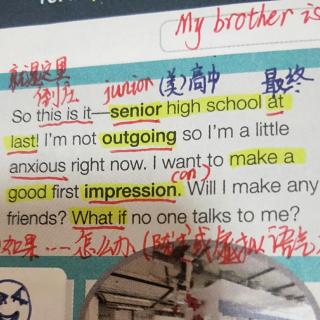 My brother is
就是这里
倒庄 junior (美)高中 最终
So this is it—senior high school at
last! I'm not outgoing so I'm a little
anxious right now. I want to make a
(on)
good first impression. Will I make any
friends? What if no one talks to me?
如果...怎么办 (陈述或虚拟语气